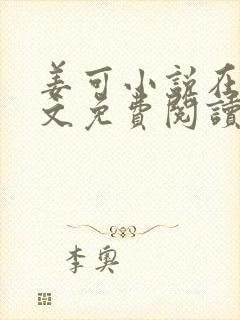 姜可小说在
文免費閱讀
李奥